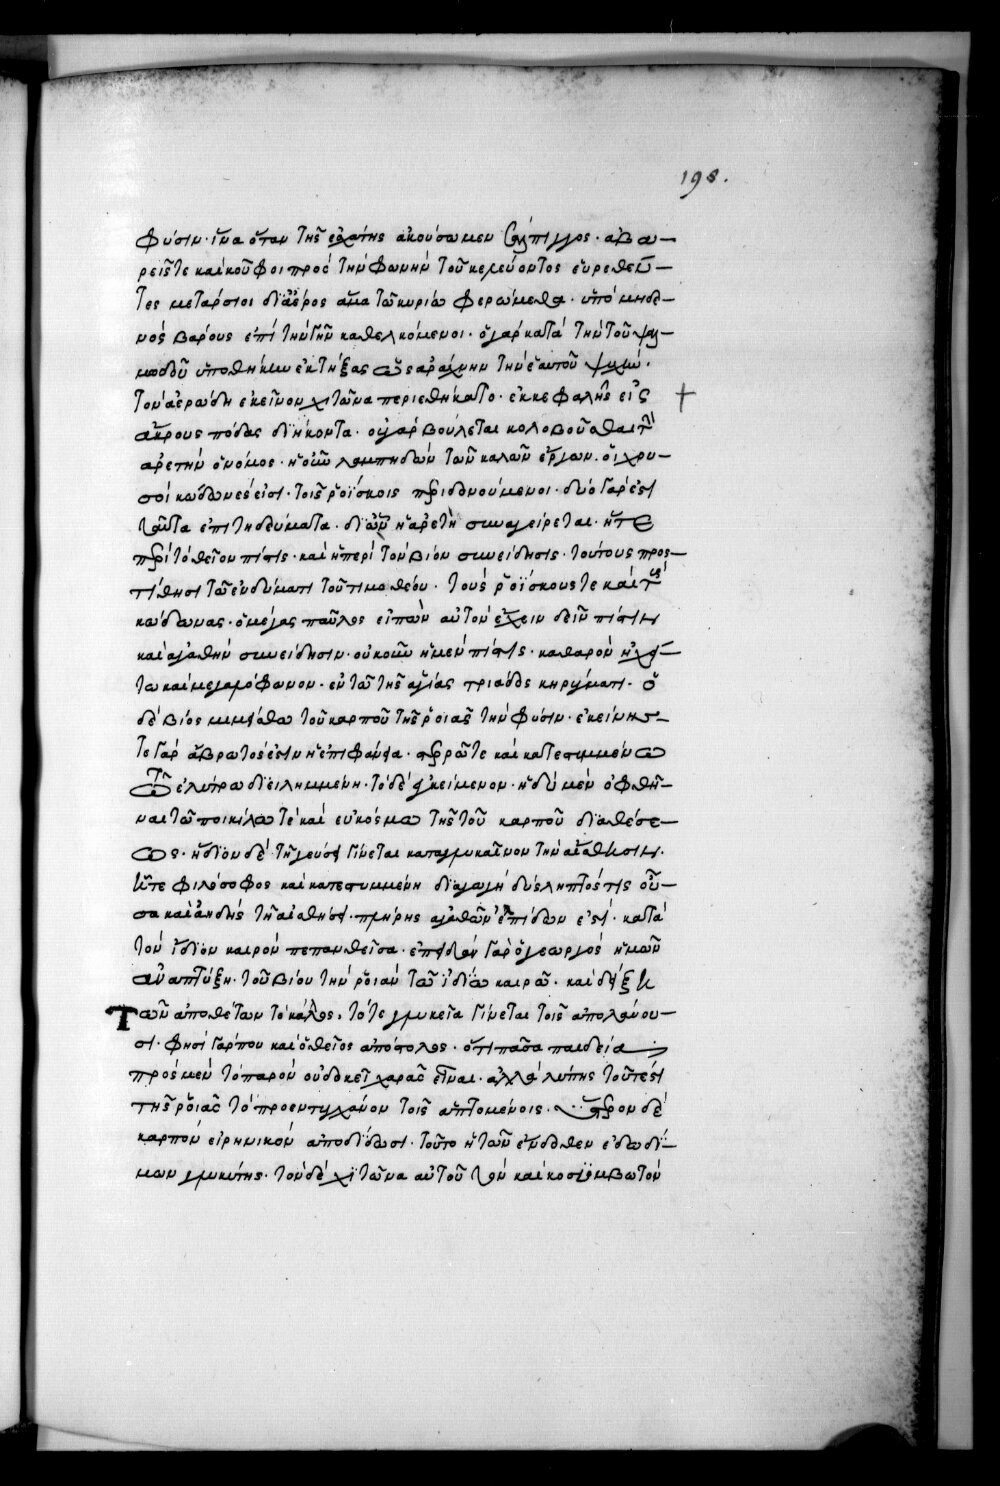 198.
φύσιν· ἵνα ὅταν τῆς ἐσχάτης ἀκούσωμεν σάλπιγγος· ἀβα—
ρεῖς τε καὶ κοῦφοι πρὸς τὴν φωνὴν τοῦ κελεύοντος εὑρεθέν—
τες μετάρσιοι δι' ἀέρος ἅμα τῷ κυρίω φερώμεθα· ὑπὸ μηδε—
νὸς βάρους ἐπὶ τὴν γῆν καθελκόμενοι· ὁ γὰρ κατὰ τὴν τοῦ ψαλ—
μωδοῦ ὑποθήκην ἐκτήξας ὡς ἀράχνην τὴν ἑαυτοῦ ψυχήν·
τὸν ἀερώδη ἐκεῖνον χιτῶνα περιεθήκατο· ἐκ κεφαλῆς εἰς
ἄκρους πόδας διήκοντα· οὐ γὰρ βούλεται κολοβοῦσθαι τὴν
ἀρετὴν ὁ νόμος· ἡ οὖν λαμπηδὼν τῶν καλῶν ἔργων· οἱ χρυ—
σοῖ κώδωνές εἰσι· τοῖς ῥοΐσκοις περιδονούμενοι· δύο γάρ ἐστι
ταῦτα ἐπιτηδεύματα· δι' ὧν ἡ ἀρετὴ συναγείρεται· ἥ τε
περὶ τὸ θεῖον πίστις· καὶ ἡ περὶ τὸν βίον συνείδησις· τούτους προσ—
τίθησι τῶ ἐνδύματι τοῦ τιμοθέου· τούς ῥοΐσκους τε καὶ τοὺς
κώδωνας· ὁ μέγας παῦλος εἰπὼν αὐτὸν ἔχειν δεῖν πίστιν
καὶ ἀγαθὴν συνείδησιν· οὐκοῦν ἡ μὲν πίστις· καθαρὸν ἠχεί—
τω καὶ μεγαλόφωνον· ἐν τῶ τῆς ἁγίας τριάδος κηρύγματι· ὁ
δὲ βίος μιμείσθω τοῦ καρποῦ τῆς ῥοιᾶς τὴν φύσιν· ἐκείνης
τε γὰρ ἄβρωτός ἐστιν ἡ ἐπιφάνεια· στερρῶ τε καὶ κατεστυμμένω
τῷ ἐλύτρω διειλημμένη· τὸ δὲ ἐγκείμενον· ἡδὺ μὲν ὀφθῆ—
ναι τῶ ποικίλω τὲ καὶ εὐκόσμω τῆς τοῦ καρποῦ διαθέσε—
ως· ἥδιον δὲ τῆ γεύσει γίνεται καταγλυκαῖνον τὴν αἴσθησιν·
ἥ τε φιλόσοφος καὶ κατεστυμμένη διαγωγὴ δύσληπτός τις οὖ—
σα καὶ ἀηδὴς τῆ αἰσθήσει· πλήρης ἀγαθῶν ἐλπίδων ἐστί· κατὰ
τὸν ἴδιον καιρὸν πεπανθεῖσα· ἐπειδὰν γὰρ ὁ γεωργὸς ἡμῶν
ἀναπτύξη· τοῦ βίου τὴν ῥοιὰν τῶ ἰδίω καιρῶ· καὶ δείξη
τῶν ἀποθέτων τὸ κάλλος, τότε γλυκεῖα γίνεται τοῖς ἀπολαύου—
σι· φησὶ γάρ που καὶ ὁ θεῖος ἀπόστολος· ὅτι πᾶσα παιδεία
πρὸς μὲν τὸ παρὸν οὐ δοκεῖ χαρᾶς εἶναι· ἀλλὰ λύπης τοῦτ' ἐστὶ
τῆς ῥοιᾶς τὸ πρὸ ἐντυγχάνον τοῖς ἁπτομένοις· ὕστερον δὲ
καρπὸν εἰρηνικὸν ἀποδίδωσι· τοῦτο ἡ τῶν ἔνδοθεν ἐδωδί—
μων γλυκύτης· τὸν δὲ χιτῶνα αὐτοῦ τὸν καὶ κοσύμβωτον